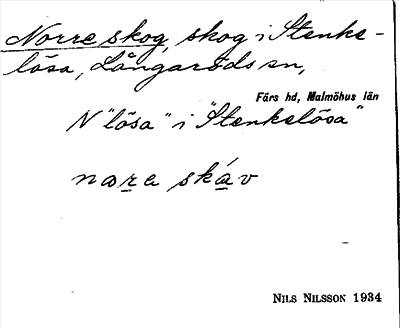 Norre skog, skog i Stenke-
lösa, Långaröds sn,
Färs hd, Malmöhus län
N "lösa" i "Stenkelösa"
nɷra skáv
NILS NILSSON 1934